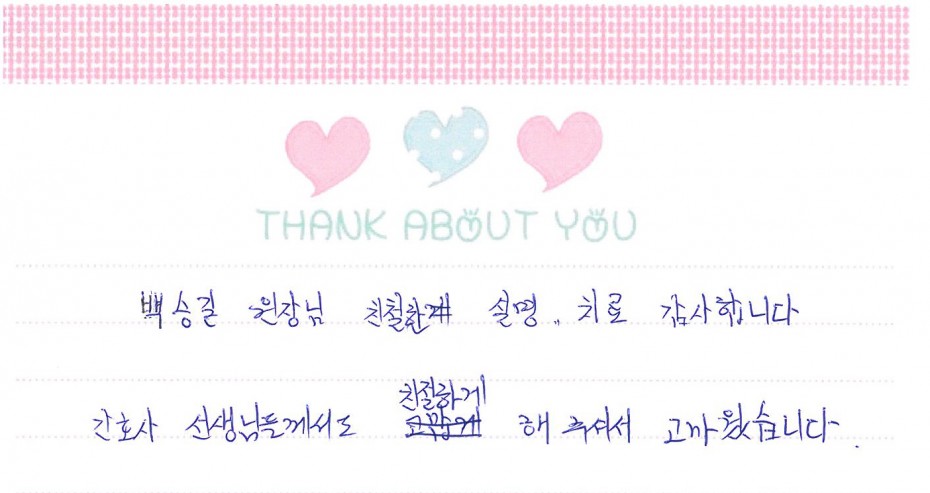 THANK ABOUT YOU
백승길 원장님 친절한 설명.. 치료 감사합니다
친절하게
간호사 선생님들께서도 해 주셔서 고마웠습니다.